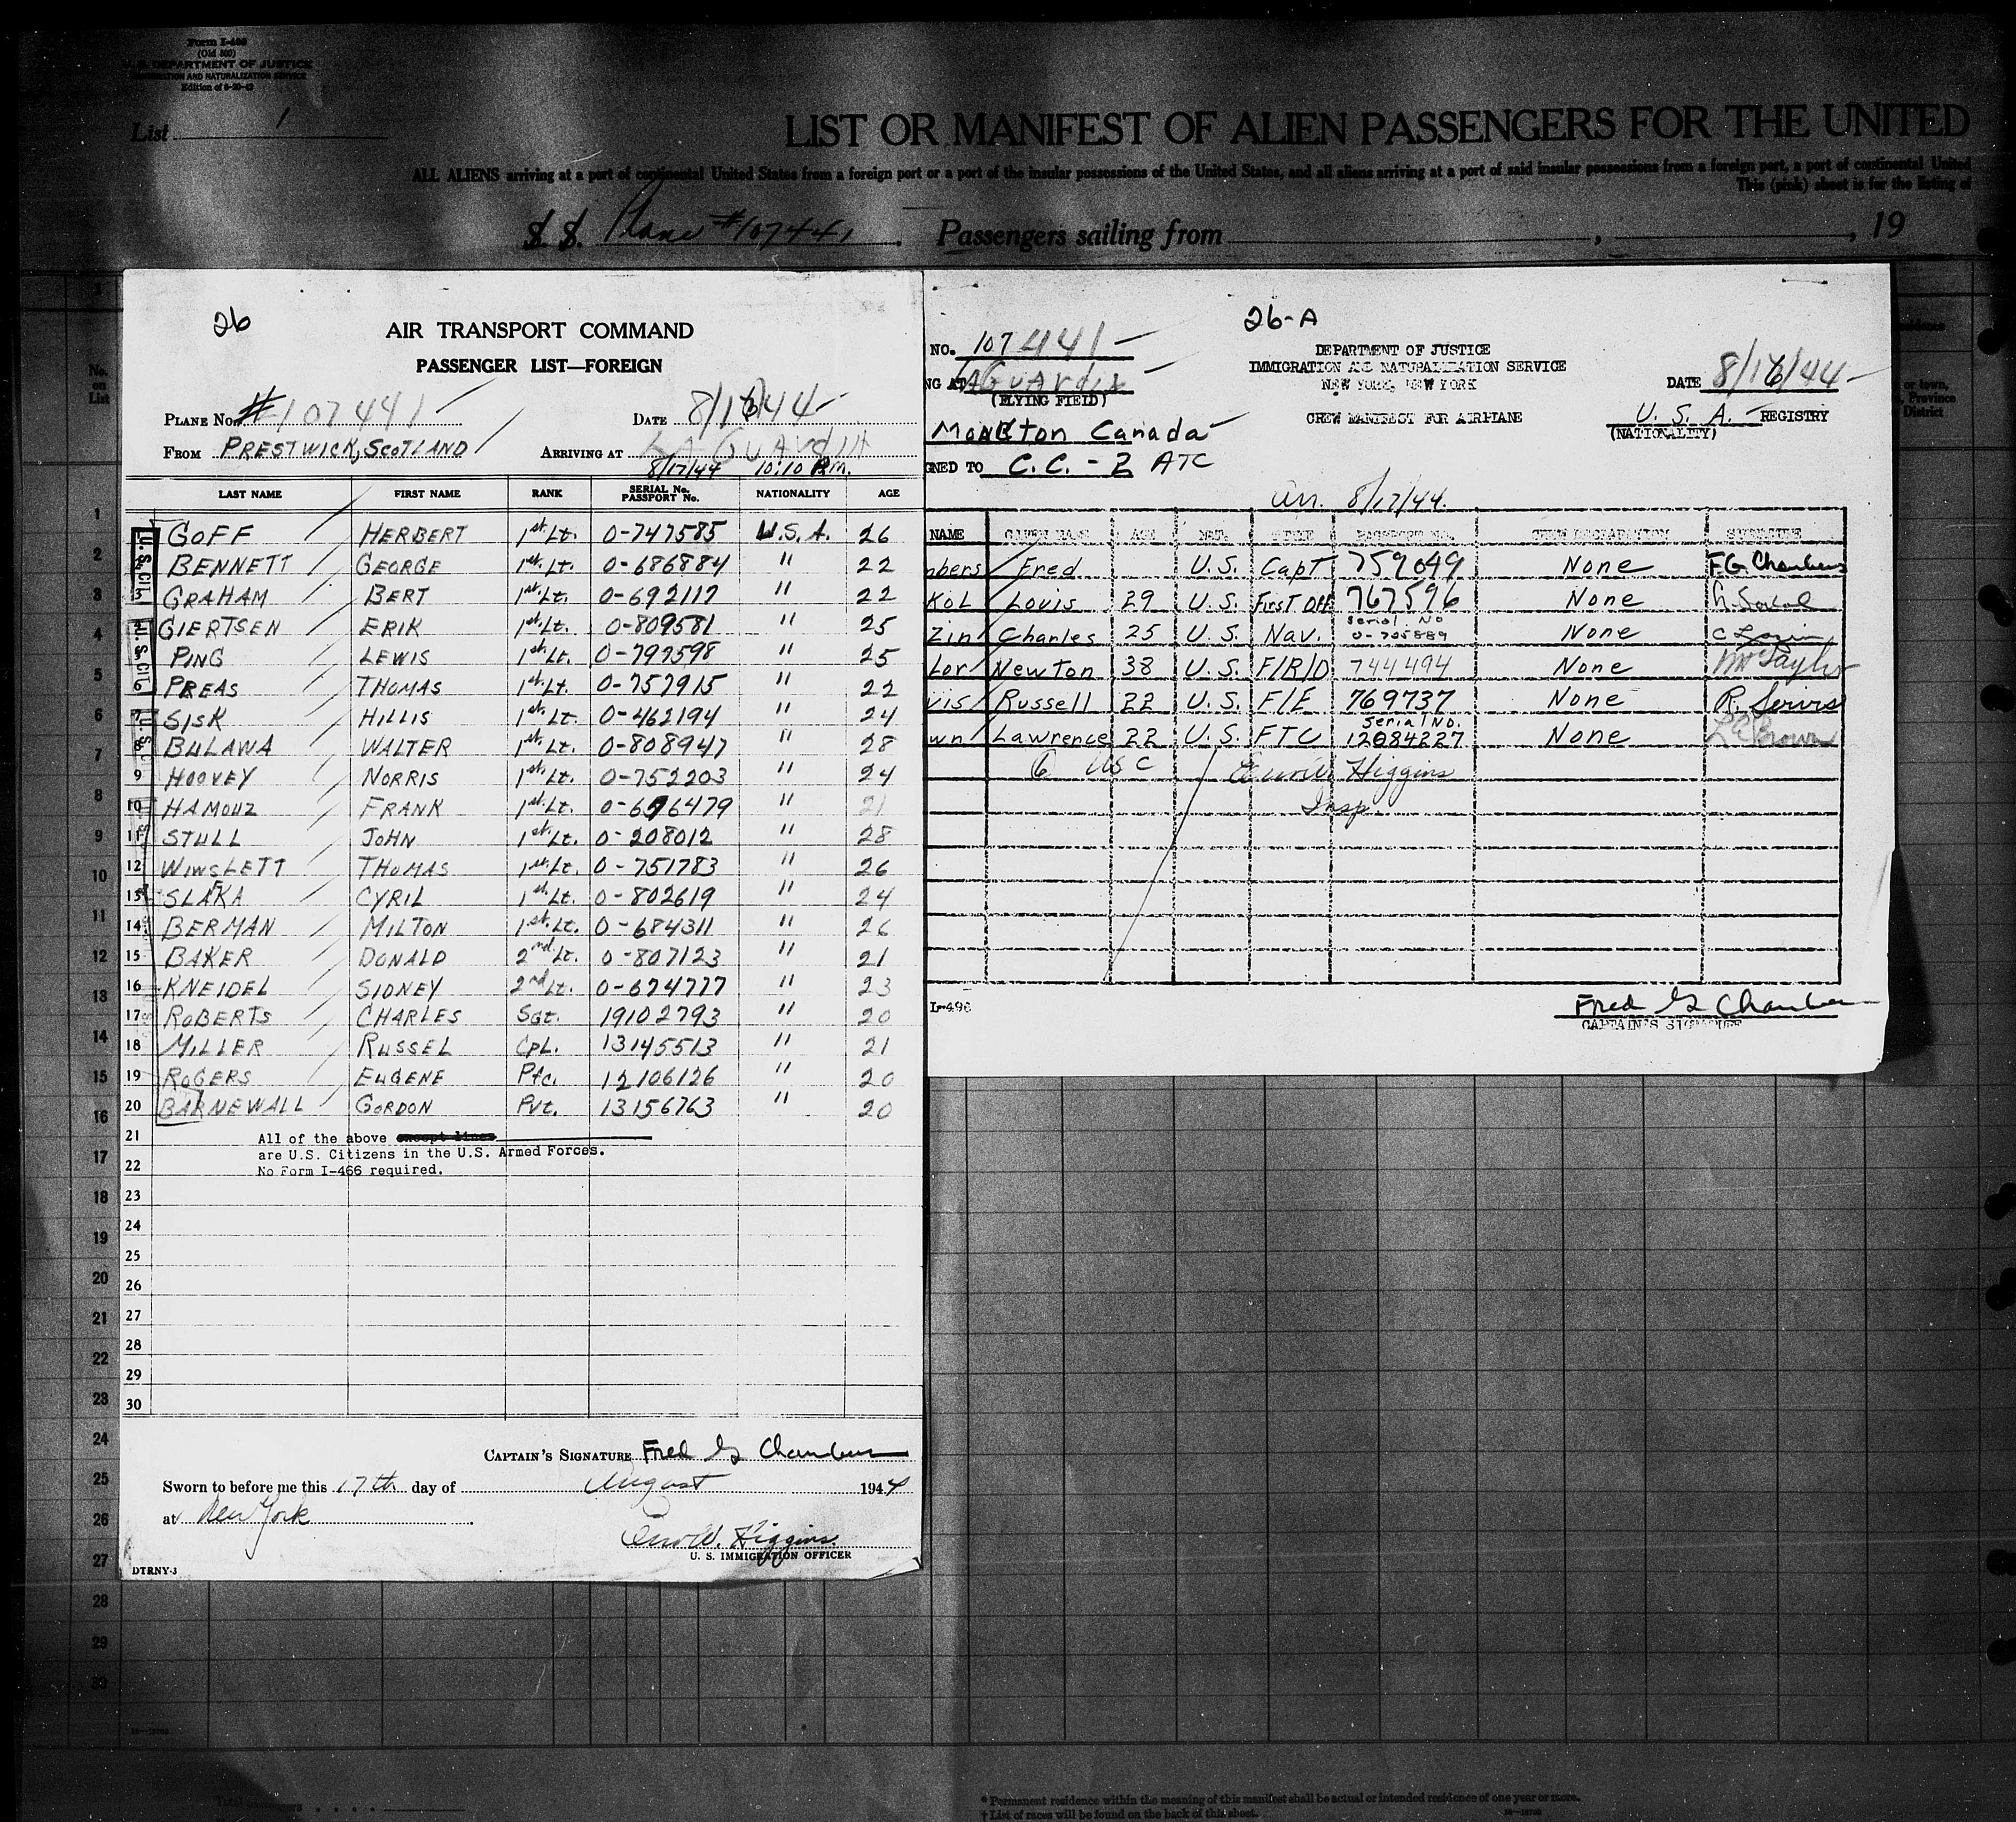 Form I-466
(Old 500)
U. S. DEPARTMENT OF JUSTICE
IMMIGRATION AND NATURALIZATION SERVICE
List 1
LIST OR MANIFEST OF ALIEN PASSENGERS FOR THE UNITED
ALL ALIENS arriving at a port of continental United States from a foreign port or a port of the insular possessions of the United States, and all aliens arriving at a port of said insular possessions from a foreign port, a port of continental United
This (pink) sheet is for the listing of
S. S. Plane #107441. Passengers sailing from , , 19
26
AIR TRANSPORT COMMAND
PASSENGER LIST—FOREIGN
PLANE No. #107441 DATE 8/16/44
FROM PRESTWICK, SCOTLAND ARRIVING AT LA GUARDIA
8/17/44 10:10 P.M.
LAST NAME FIRST NAME RANK SERIAL No. PASSPORT No. NATIONALITY AGE
GOFF HERBERT 1st Lt. 0-747585 U.S.A. 26
BENNETT GEORGE 1st Lt. 0-686884 " 22
3 GRAHAM BERT 1st Lt. 0-692117 " 22
GIERTSEN ERIK 1st Lt. 0-809581 " 25
PING LEWIS 1st Lt. 0-797598 " 25
6 PREAS THOMAS 1st Lt. 0-757915 " 22
7 SISK HILLIS 1st Lt. 0-462194 " 24
8 BULAWA WALTER 1st Lt. 0-808947 " 28
9 HOOVEY NORRIS 1st Lt. 0-752203 " 24
10 HAMOUZ FRANK 1st Lt. 0-676479 " 21
11 STULL JOHN 1st Lt. 0-208012 " 28
12 WINSLETT THOMAS 1st Lt. 0-751783 " 26
13 SLAFKA CYRIL 1st Lt. 0-802619 " 24
14 BERMAN MILTON 1st Lt. 0-684311 " 26
15 BAKER DONALD 2nd Lt. 0-807123 " 21
16 KNEIDEL SIDNEY 2nd Lt. 0-674777 " 23
17 ROBERTS CHARLES Sgt. 19102793 " 20
18 MILLER RUSSEL Cpl. 13145513 " 21
19 ROGERS EUGENE Pfc. 12106126 " 20
20 BARNEWALL GORDON Pvt. 13156763 " 20
21 All of the above except lines
are U.S. Citizens in the U.S. Armed Forces.
22 No Form I-466 required.
23
24
25
26
27
28
29
30
CAPTAIN'S SIGNATURE Fred G Chambers
Sworn to before me this 17th day of August 1944
at New York
W. Higgins
U. S. IMMIGRATION OFFICER
DTRNY-3
26-A
NO. 107441
DEPARTMENT OF JUSTICE
IMMIGRATION AND NATURALIZATION SERVICE
NEW YORK, NEW YORK
DATE 8/16/44
NG AT LAGuardia
(FLYING FIELD)
CREW MANIFEST FOR AIRPLANE
U. S. A. REGISTRY
(NATIONALITY)
Moncton Canada
GNED TO C.C. - 2 ATC
Arr. 8/17/44.
NAME GIVEN NAME AGE NAT. TITLE PASSPORT NO. CREW DECLARATION SIGNATURE
mbers Fred U.S. Capt 759049 None F.G. Chambers
KOL Louis 29 U.S. First Off 767596 None L. Sokol
Zin Charles 25 U.S. Nav. Serial No 0-705889 None
Lor Newton 38 U.S. F/R/O 744494 None
vis Russell 22 U.S. F/E 769737 None R. Servis
wn Lawrence 22 U.S. FTC Serial No. 12084227 None L C Brown
6 USC W Higgins
Insp
I-496
Fred G Chambers
CAPTAIN'S SIGNATURE
* Permanent residence within the meaning of this manifest shall be actual or intended residence of one year or more.
† List of races will be found on the back of this sheet.